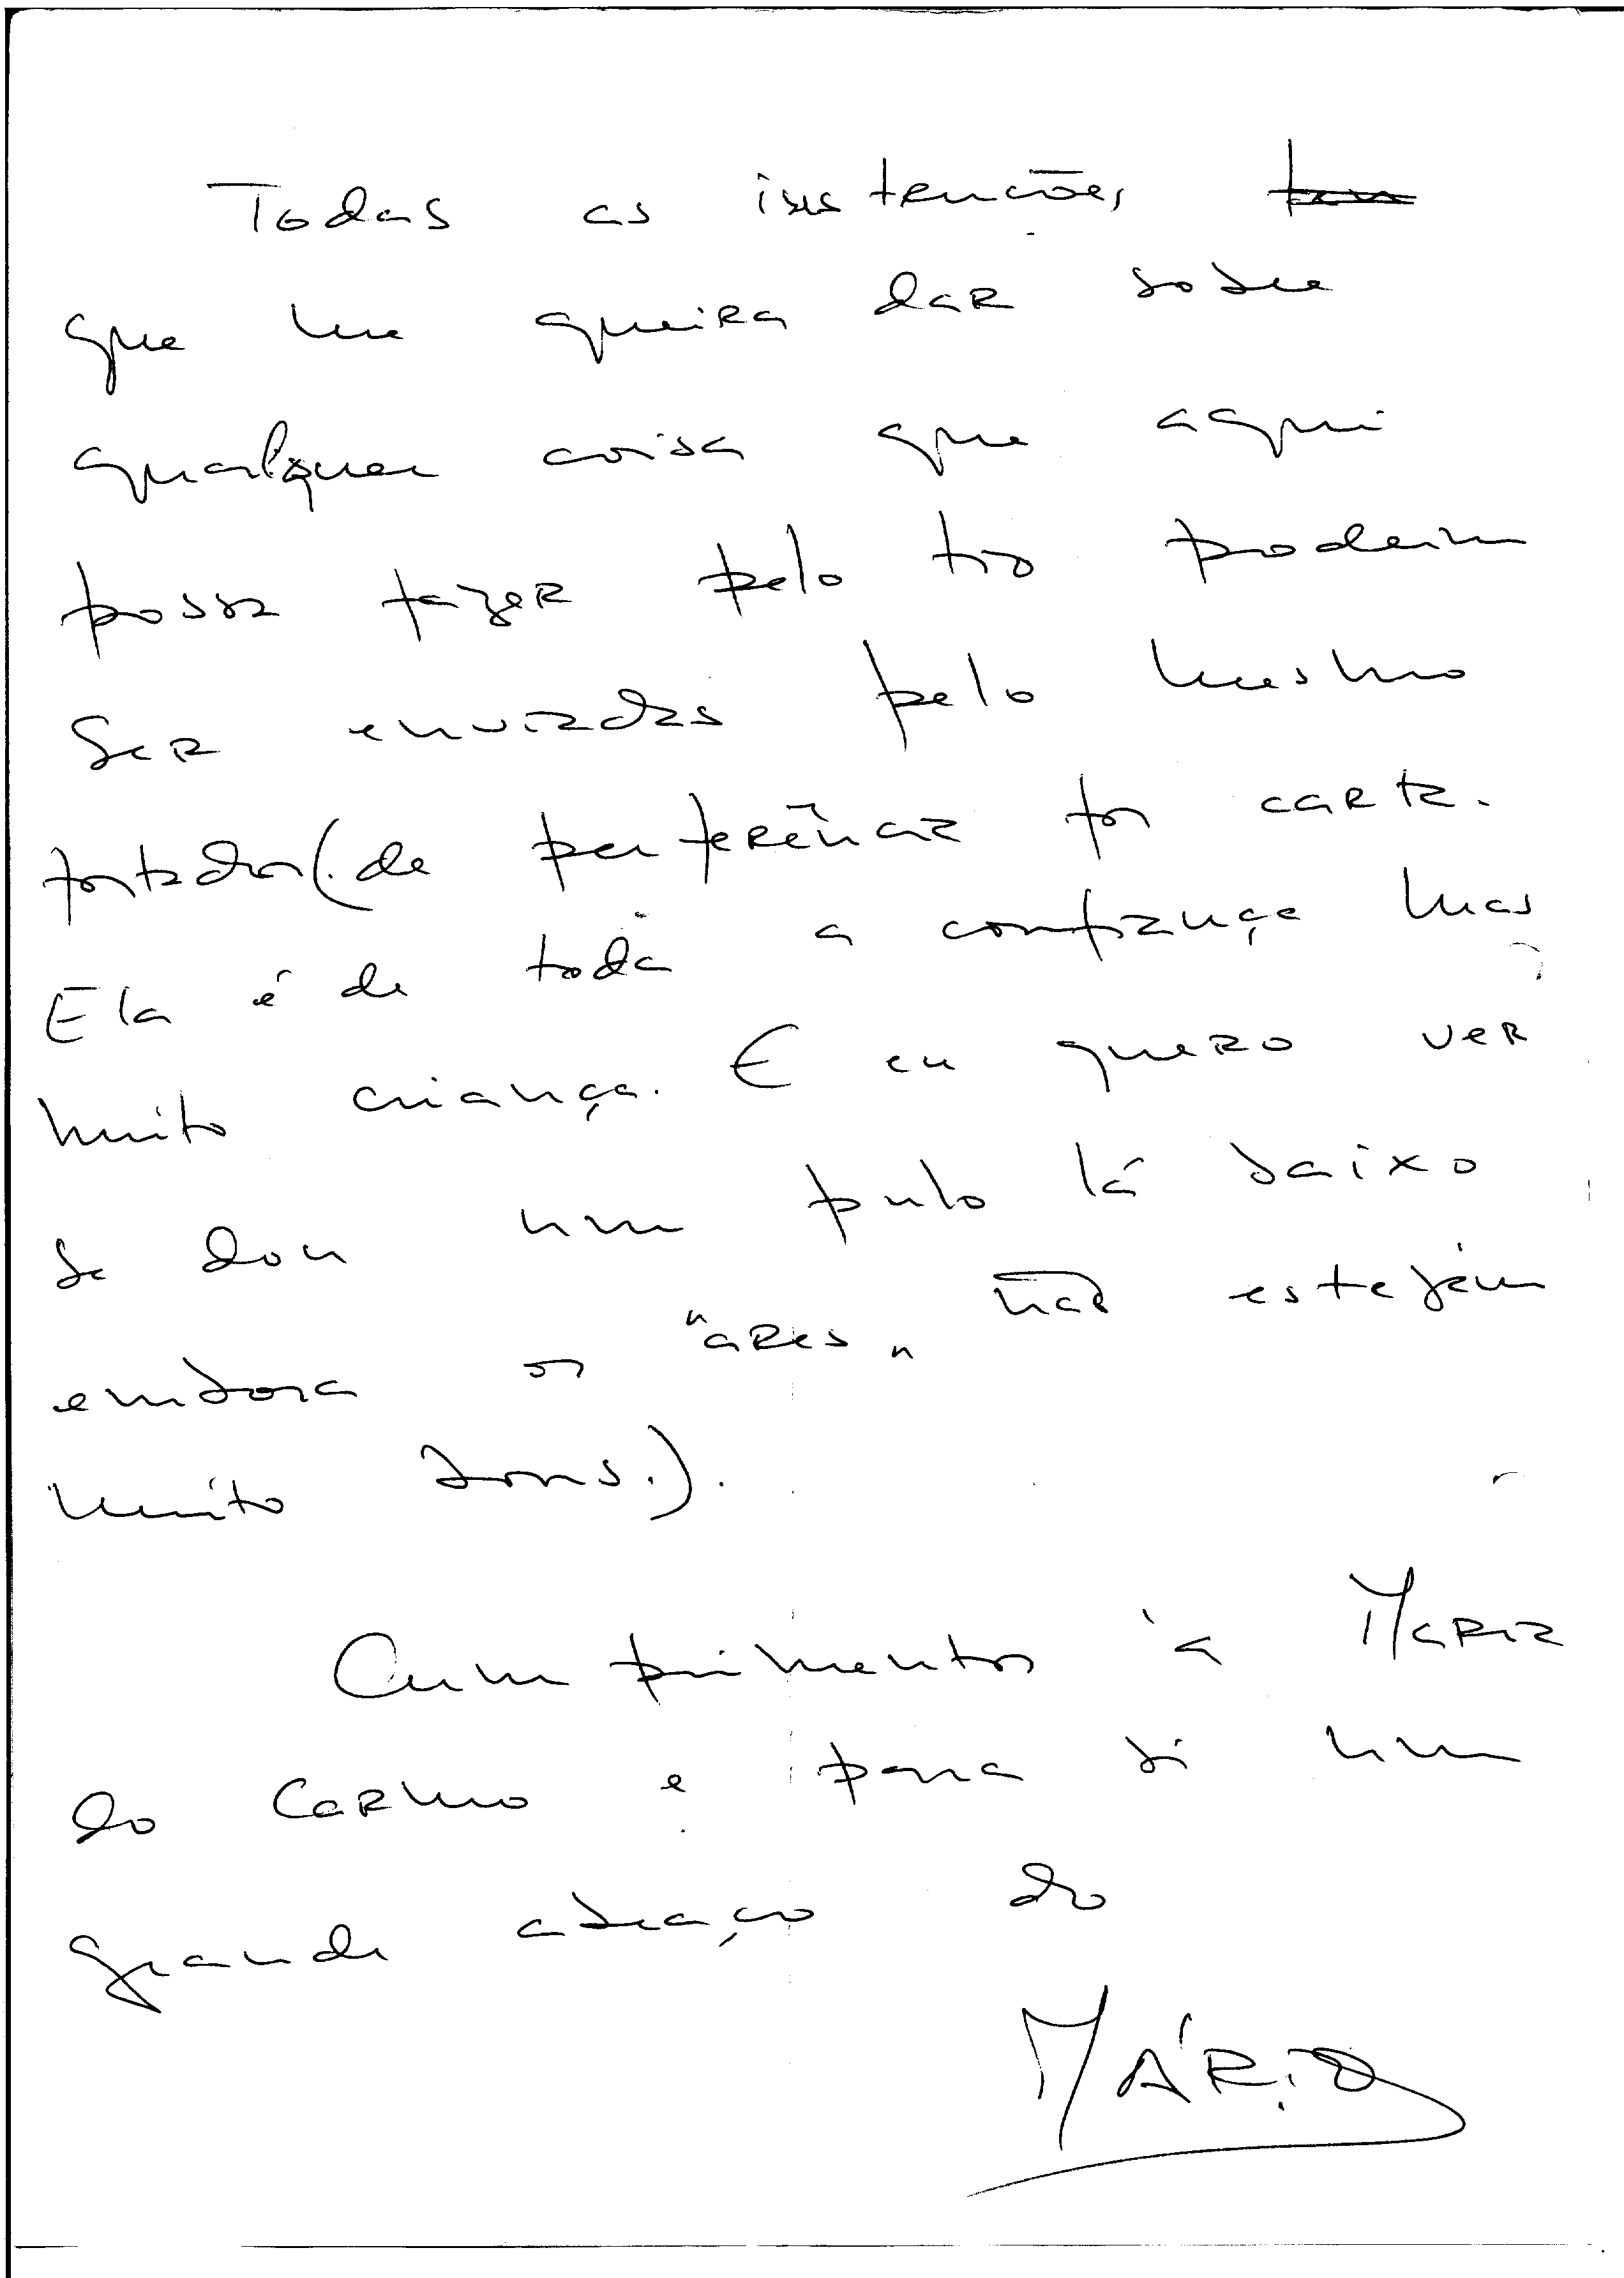 Todas as
que me queira dar sobre
qualquer coisa que aqui
possa fazer pelo tio podem
ser enviadas pelo mesmo
portador (de preferência por carta.
Ela é de toda a confiança mas
muito criança. E eu quero ver
se dou um pulo lá baixo
embora os "ares" não estejam
muito bons.).
Cumprimentos à Maria
do Carmo e para si um
grande abraço do
MÁRIO